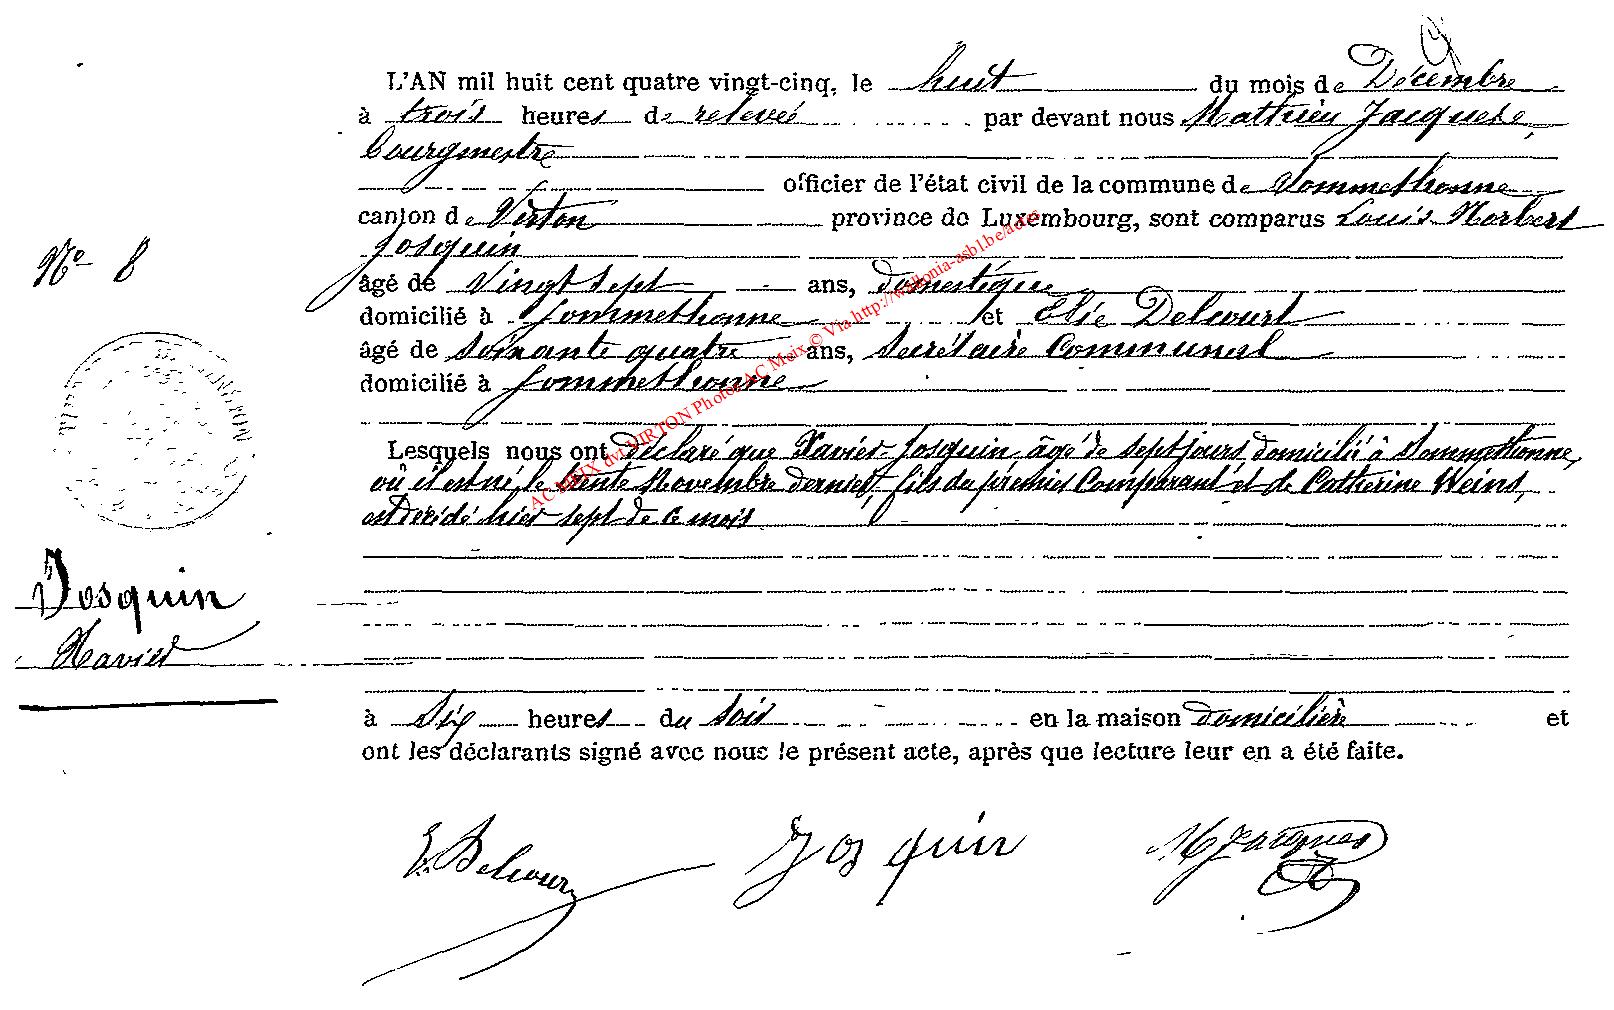 L'AN mil huit cent quatre vingt-cinq, le huit du mois de Décembre
à trois heures de relevée par devant nous Mathieu Jacques,
bourgmestre
officier de l'état civil de la commune de Sommethonne
canton de Virton province de Luxembourg, sont comparus Louis Norbert
Josquin
Nº 8
âgé de vingt sept ans, domestique
domicilié à Sommethonne et Elie Delcourt
âgé de soixante quatre ans, secrétaire communal
domicilié à Sommethonne
Lesquels nous ont déclaré que Xavier Josquin âgé de sept jours, domicilié à Sommethonne,
où il est né le trente Novembre dernier, fils du premier Comparant et de Catherine Weins,
est décédé hier sept de ce mois
Josquin
Xavier
à six heures du soir en la maison domicilière et
ont les déclarants signé avec nous le présent acte, après que lecture leur en a été faite.
E. Delcour Josquin M Jacques
AC MEIX dvt VIRTON Photos AC Meix © Via http://wallonia-asbl.be/actes